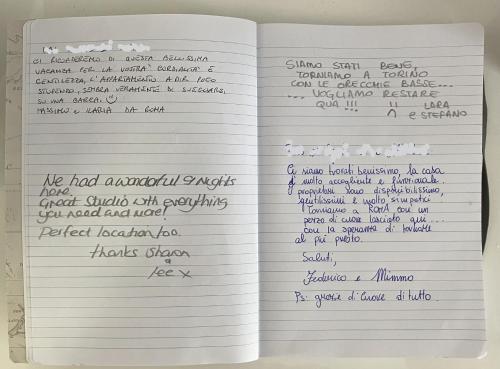 CI RICORDEREMO DI QUESTA BELLISSIMA
VACANZA PER LA VOSTRA CORDIALITÀ E
GENTILEZZA, L'APPARTAMENTO A DIR POCO
STUPENDO, SEMBRA VERAMENTE DI SVEGLIARSI
SU UNA BARCA.
MASSIMO E ILARIA DA ROMA
We had a wonderful 9 Nights
here.
Great Studio with everything
you need and more!
Perfect location too.
thanks Sharon
&
Lee x
SIAMO STATI BENE,
TORNIAMO A TORINO
CON LE ORECCHIE BASSE...
... VOGLIAMO RESTARE
QUA !!!
LARA
e STEFANO
Ci siamo trovati benissimo, la casa
è molto accogliente e funzionale.
proprietari sono disponibilissimi,
gentilissimi e molto simpatici
Torniamo a ROMA con un
pezzo di cuore lasciato qui...
con la speranza di tornare
al più presto.
Saluti,
Federico e Mimmo
Ps: grazie di cuore di tutto.